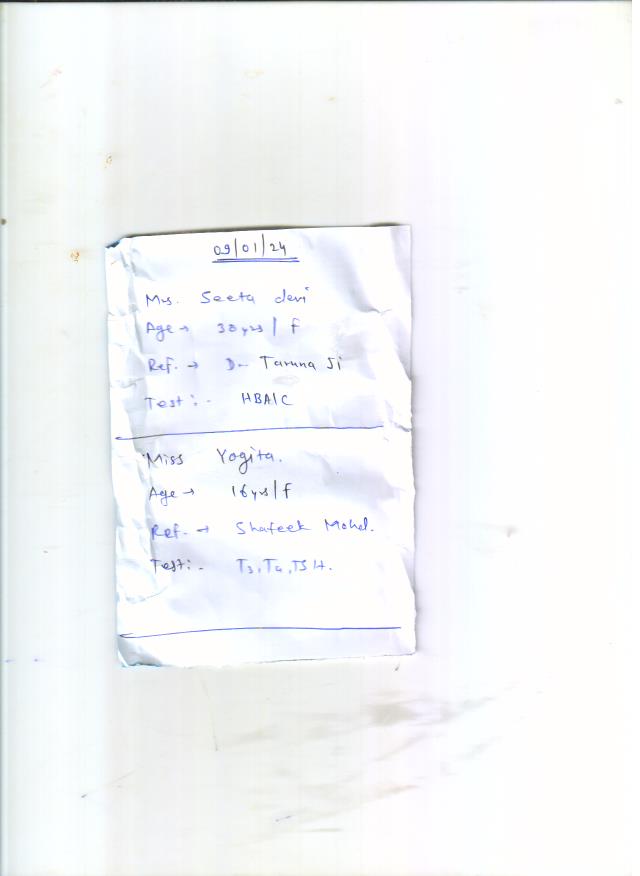 09/01/24
Mrs. Seeta devi
Age → 38 yrs / f
Ref. → Dr Taruna Ji
Test :- HBA1C
Miss Yogita.
Age → 16 yrs / f
Ref. → Shafeek Mohd.
Test :- T3, T4, TSH.